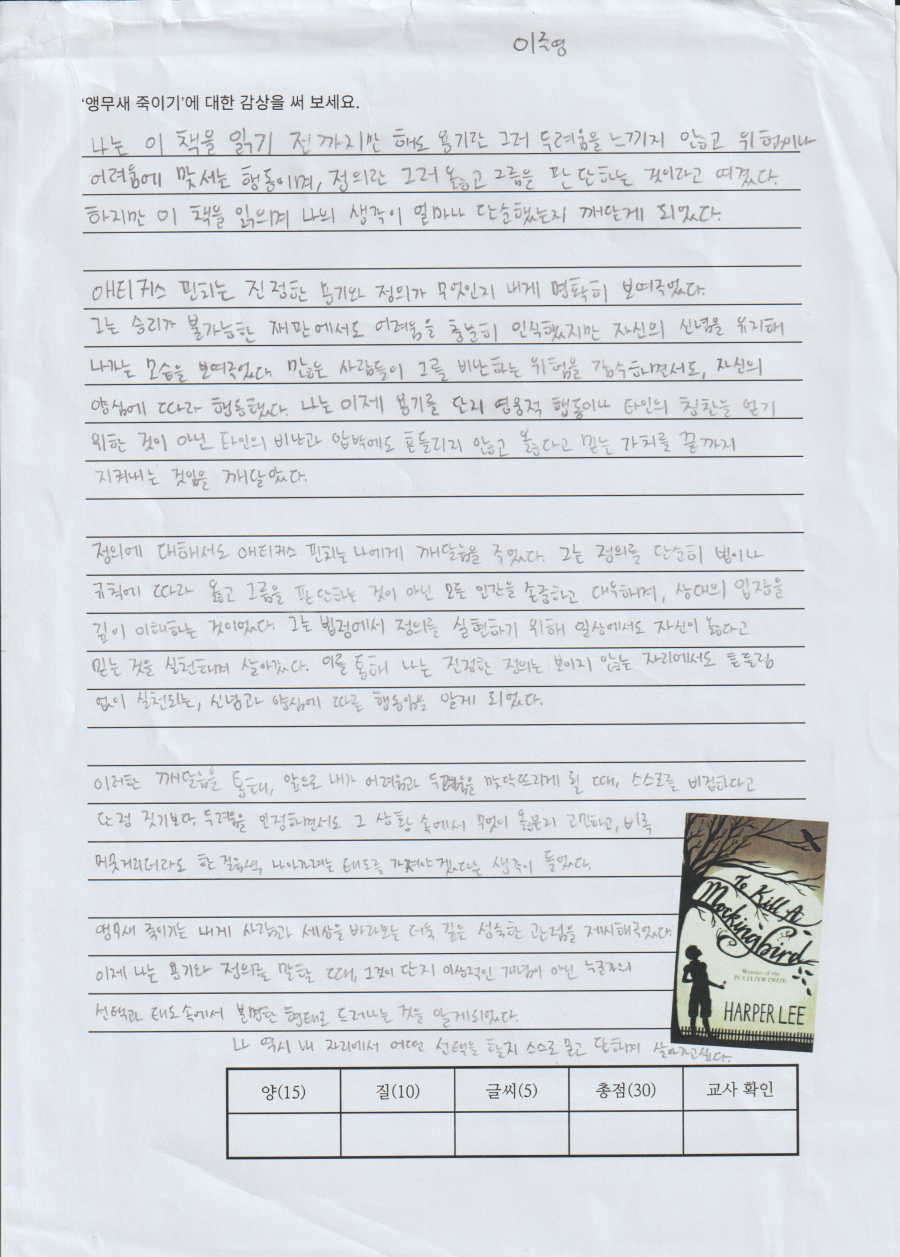 이주영
‘앵무새 죽이기’에 대한 감상을 써 보세요.
나는 이 책을 읽기 전까지만 해도 용기란 그저 두려움을 느끼지 않고 위험이나
어려움에 맞서는 행동이며, 정의란 그저 옳고 그름을 판단하는 것이라고 여겼다.
하지만 이 책을 읽으며 나의 생각이 얼마나 단순했는지 깨닫게 되었다.
애티커스 핀치는 진정한 용기와 정의가 무엇인지 내게 명확히 보여주었다.
그는 승리가 불가능한 재판에서도 어려움을 충분히 인식했지만 자신의 신념을 유지해
나가는 모습을 보여주었다. 많은 사람들이 그를 비난하는 위험을 감수하면서도, 자신의
양심에 따라 행동했다. 나는 이제 용기를 단지 영웅적 행동이나 타인의 칭찬을 얻기
위한 것이 아닌 타인의 비난과 압박에도 흔들리지 않고 옳다고 믿는 가치를 끝까지
지켜내는 것임을 깨달았다.
정의에 대해서도 애티커스 핀치는 나에게 깨달음을 주었다. 그는 정의를 단순히 법이나
규칙에 따라 옳고 그름을 판단하는 것이 아닌 모든 인간을 존중하고 대우하며, 상대의 입장을
깊이 이해하는 것이었다. 그는 법정에서 정의를 실현하기 위해 일상에서도 자신이 옳다고
믿는 것을 실천하며 살아갔다. 이를 통해 나는 진정한 정의는 보이지 않는 자리에서도 흔들림
없이 실천되는, 신념과 양심에 따른 행동임을 알게 되었다.
이러한 깨달음을 통해, 앞으로 내가 어려움과 두려움을 맞닥뜨리게 될 때, 스스로를 비겁하다고
단정 짓기보다 두려움을 인정하면서도 그 상황 속에서 무엇이 옳은지 고민하고, 비록
머뭇거리더라도 한 걸음씩 나아가려는 태도를 가져야겠다는 생각이 들었다.
앵무새 죽이기는 내게 사람과 세상을 바라보는 더욱 깊은 성숙한 관점을 제시해주었다.
이제 나는 용기와 정의를 말할 때, 그것이 단지 이상적인 개념이 아닌 누군가의
선택과 태도 속에서 분명한 형태로 드러나는 것을 알게되었다.
나 역시 내 자리에서 어떤 선택을 할지 스스로 묻고 답하며 살아가고싶다.
To Kill A
Mockingbird
Winner of the
PULITZER PRIZE
HARPER LEE
양(15) 질(10) 글씨(5) 총점(30) 교사 확인